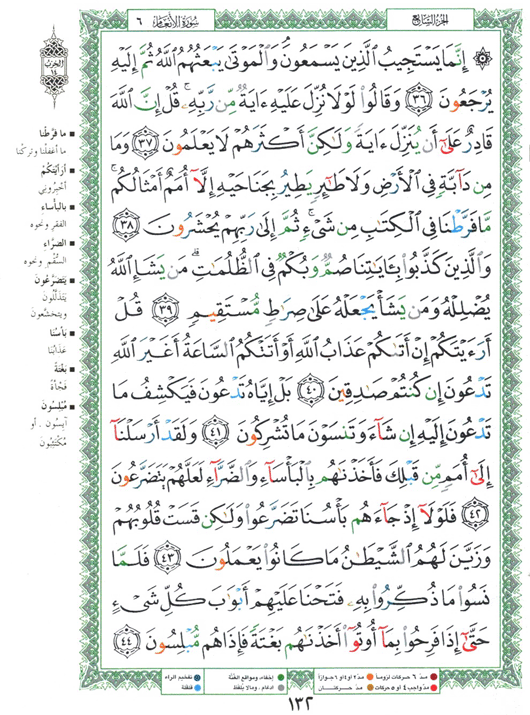 الجزء السابع
سورة الأنعام
٦
۞ إِنَّمَا يَسْتَجِيبُ الَّذِينَ يَسْمَعُونَ وَالْمَوْتَىٰ يَبْعَثُهُمُ اللَّهُ ثُمَّ إِلَيْهِ
يُرْجَعُونَ ٣٦ وَقَالُوا لَوْلَا نُزِّلَ عَلَيْهِ ءَايَةٌ مِّن رَّبِّهِ ۚ قُلْ إِنَّ اللَّهَ
قَادِرٌ عَلَىٰ أَن يُنَزِّلَ ءَايَةً وَلَٰكِنَّ أَكْثَرَهُمْ لَا يَعْلَمُونَ ٣٧ وَمَا
مِن دَابَّةٍ فِي الْأَرْضِ وَلَا طَٰئِرٍ يَطِيرُ بِجَنَاحَيْهِ إِلَّا أُمَمٌ أَمْثَالُكُم ۚ
مَّا فَرَّطْنَا فِي الْكِتَٰبِ مِن شَيْءٍ ۚ ثُمَّ إِلَىٰ رَبِّهِمْ يُحْشَرُونَ ٣٨
وَالَّذِينَ كَذَّبُوا بِـَٔايَٰتِنَا صُمٌّ وَبُكْمٌ فِي الظُّلُمَٰتِ ۗ مَن يَشَإِ اللَّهُ
يُضْلِلْهُ وَمَن يَشَأْ يَجْعَلْهُ عَلَىٰ صِرَٰطٍ مُّسْتَقِيمٍ ٣٩ قُلْ
أَرَءَيْتَكُمْ إِنْ أَتَىٰكُمْ عَذَابُ اللَّهِ أَوْ أَتَتْكُمُ السَّاعَةُ أَغَيْرَ اللَّهِ
تَدْعُونَ إِن كُنتُمْ صَٰدِقِينَ ٤٠ بَلْ إِيَّاهُ تَدْعُونَ فَيَكْشِفُ مَا
تَدْعُونَ إِلَيْهِ إِن شَاءَ وَتَنسَوْنَ مَا تُشْرِكُونَ ٤١ وَلَقَدْ أَرْسَلْنَا
إِلَىٰ أُمَمٍ مِّن قَبْلِكَ فَأَخَذْنَٰهُم بِالْبَأْسَاءِ وَالضَّرَّاءِ لَعَلَّهُمْ يَتَضَرَّعُونَ
٤٢ فَلَوْلَا إِذْ جَاءَهُم بَأْسُنَا تَضَرَّعُوا وَلَٰكِن قَسَتْ قُلُوبُهُمْ
وَزَيَّنَ لَهُمُ الشَّيْطَٰنُ مَا كَانُوا يَعْمَلُونَ ٤٣ فَلَمَّا
نَسُوا مَا ذُكِّرُوا بِهِ فَتَحْنَا عَلَيْهِمْ أَبْوَٰبَ كُلِّ شَيْءٍ
حَتَّىٰ إِذَا فَرِحُوا بِمَا أُوتُوا أَخَذْنَٰهُم بَغْتَةً فَإِذَا هُم مُّبْلِسُونَ ٤٤
الحزب
١٤
■ ما فرّطنا
ما أغفلنا وتركنا
■ أرأيتكم
أخبروني
■ بالبأساء
الفقر ونحوه
■ الضرّاء
السّقم ونحوه
■ يتضرّعون
يتذلّلون
ويتخشّعون
■ بأسنا
عذابنا
■ بغتة
فجأة
■ مبلسون
آيسون . أو
مكتئبون
مدّ ٦ حركات لزوماً
مدّ ٢ أو ٤ أو ٦ جوازاً
إخفاء، ومواقع الغُنَّة
تفخيم الراء
مدّ واجب ٤ أو ٥ حركات
مدّ حركتان
إدغام، وما لا يُلفظ
قلقلة
١٣٢